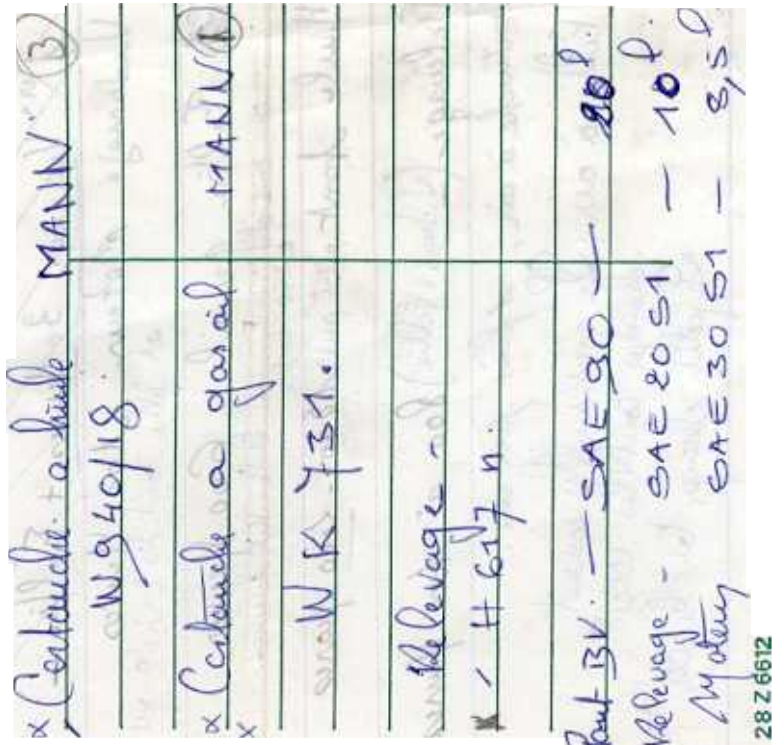 x Cartouche a huile MANN 3
W 940/18
x Cartouche a gasoil MANN 1
x
W K 731.
Relevage -
x - H 617 n.
Pont BV. - SAE 90 - 20 l.
Relevage - SAE 20 S1 - 10 l.
Moteur SAE 30 S1 - 8,5 l
28 Z 6612